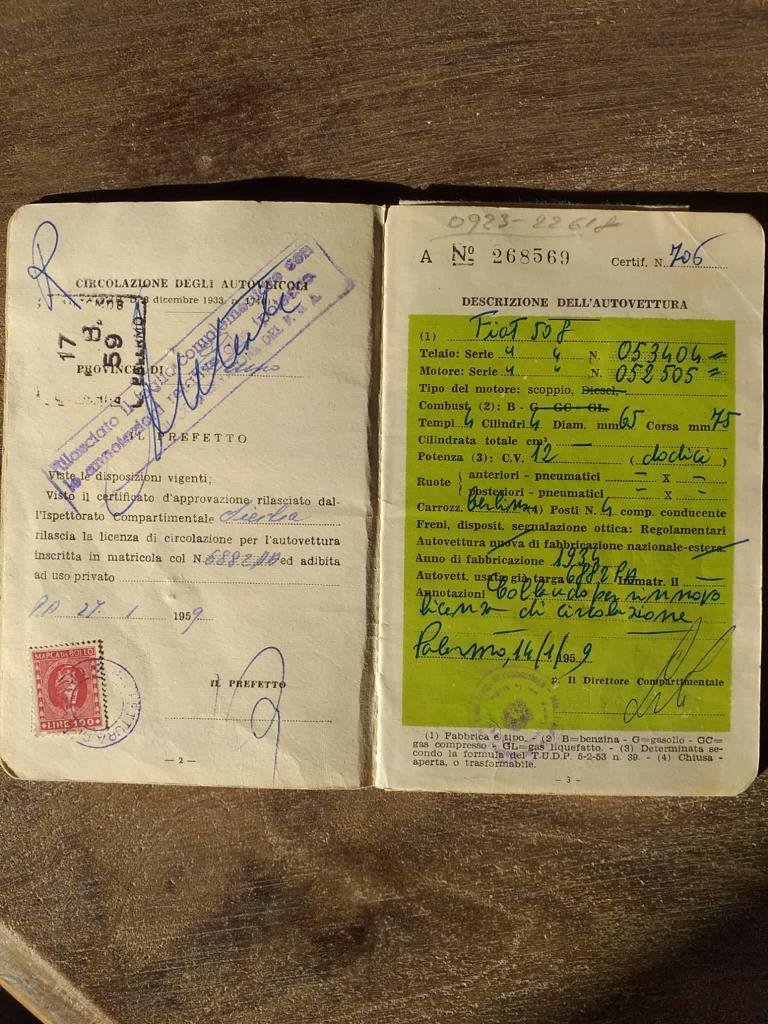 R
CIRCOLAZIONE DEGLI AUTOVEICOLI
8 dicembre 1933, n. 1740
17
59
PALERMO
PROVINCIA DI
Rilasciato il foglio complementare con
le annotazioni
IL PREFETTO
Viste le disposizioni vigenti;
Visto il certificato d'approvazione rilasciato dal-
l'Ispettorato Compartimentale Sicilia
rilascia la licenza di circolazione per l'autovettura
inscritta in matricola col N. 6882 PA ed adibita
ad uso privato
PA 27. 1 1959
MARCA DA BOLLO
LIRE 100
IL PREFETTO
— 2 —
0923-22618
A No 268569 Certif. N. 706
DESCRIZIONE DELL'AUTOVETTURA
(1) Fiat 508
Telaio: Serie " " N. 053404 =
Motore: Serie " " N. 052505 =
Tipo del motore: scoppio, Diesel.
Combust. (2): B - G - GC - GL.
Tempi 4 Cilindri 4 Diam. mm 65 Corsa mm 75
Cilindrata totale cm³
Potenza (3): C.V. 12 — ( dodici )
Ruote { anteriori - pneumatici — X —
posteriori - pneumatici — X —
Carrozz. berlina (4) Posti N. 4 comp. conducente
Freni, disposit. segnalazione ottica: Regolamentari
Autovettura nuova di fabbricazione nazionale-estera.
Anno di fabbricazione 1934
Autovett. usata già targa 6882 PA Immatr. il —
Annotazioni Collaudo per rinnovo
licenza di circolazione
Palermo, 14/1/1959
p. Il Direttore Compartimentale
(1) Fabbrica e tipo. - (2) B=benzina - G=gasolio - GC=
gas compresso - GL=gas liquefatto. - (3) Determinata se-
condo la formula del T.U.D.P. 5-2-53 n. 39. - (4) Chiusa -
aperta, o trasformabile.
— 3 —